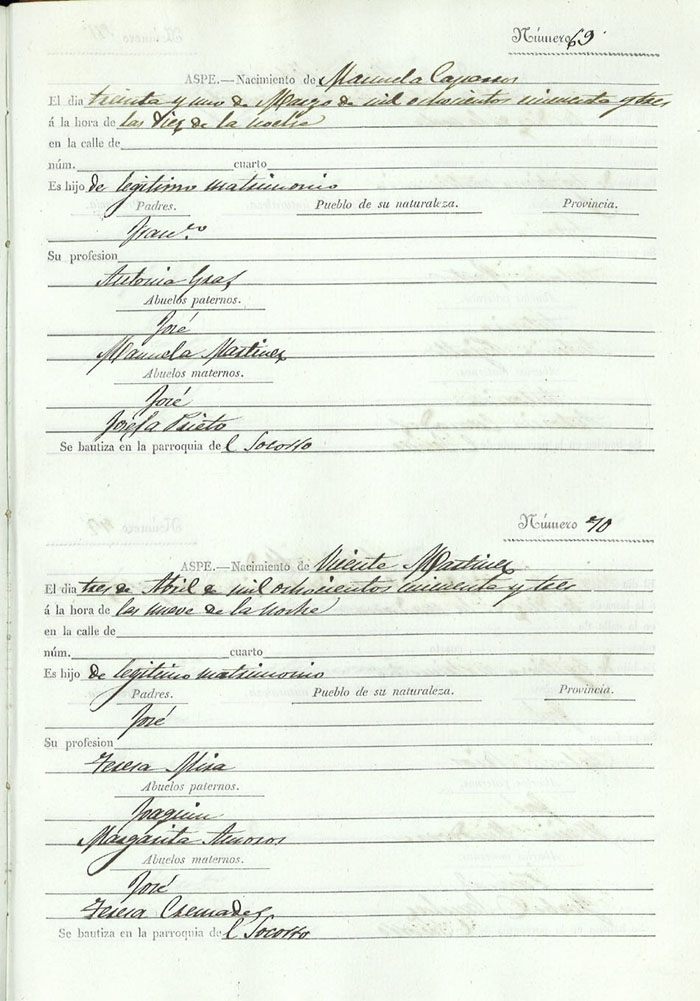 Número 69
ASPE.—Nacimiento de Manuela Caparros
El dia treinta y uno de Marzo de mil ochocientos cincuenta y tres
á la hora de las diez de la noche
en la calle de
núm. cuarto
Es hijo de legitimo matrimonio
Padres. Pueblo de su naturaleza. Provincia.
Franco
Su profesion
Antonia Graf
Abuelos paternos.
José
Manuela Martinez
Abuelos maternos.
José
Josefa Prieto
Se bautiza en la parroquia del Socorro
Número 70
ASPE.—Nacimiento de Vicente Martinez
El dia tres de Abril de mil ochocientos cincuenta y tres
á la hora de las nueve de la noche
en la calle de
núm. cuarto
Es hijo de legitimo matrimonio
Padres. Pueblo de su naturaleza. Provincia.
José
Su profesion
Teresa Mira
Abuelos paternos.
Joaquin
Margarita Amoros
Abuelos maternos.
José
Teresa Cremades
Se bautiza en la parroquia del Socorro